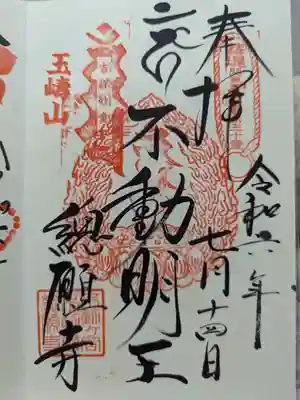 奉拝
令和六年
七月十四日
不動明王
玉嶹山
總願寺